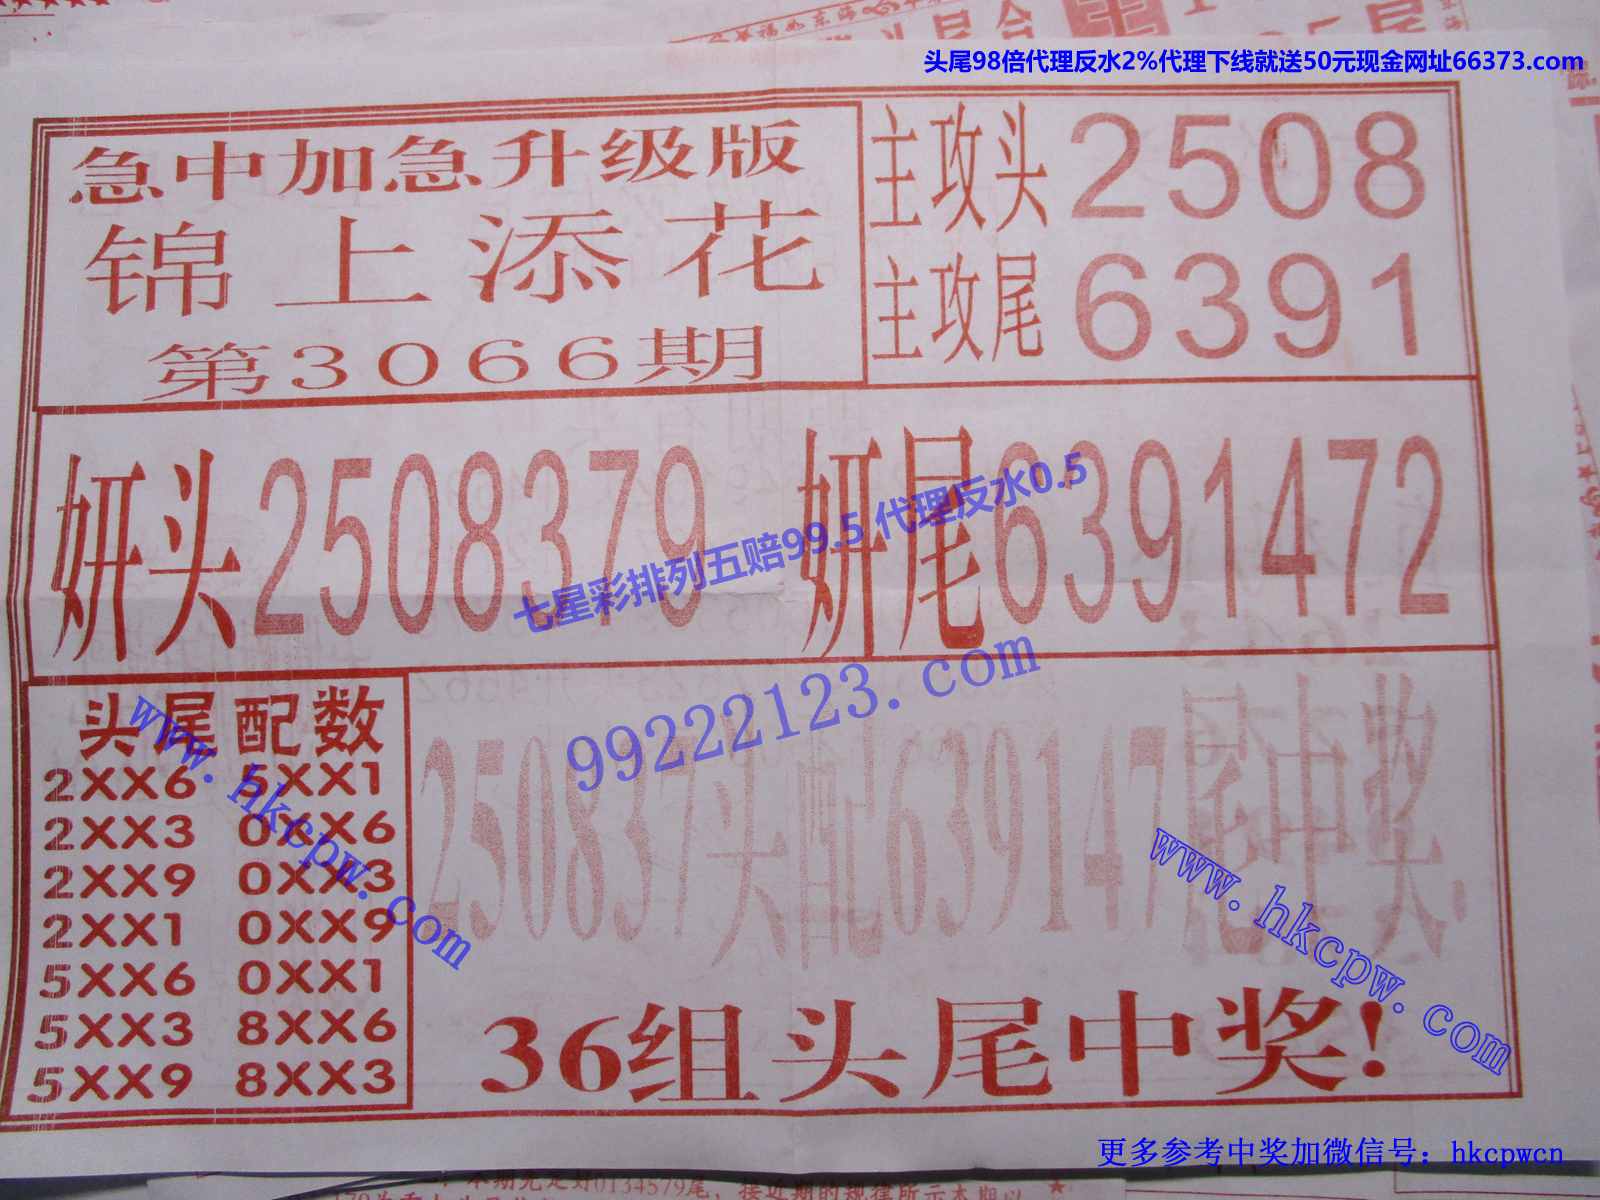 头尾98倍代理反水2%代理下线就送50元现金网址66373.com
急中加急升级版
锦上添花
第3066期
主攻头2508
主攻尾6391
妍头2508379
妍尾6391472
七星彩排列五赔99.5 代理反水0.5
99222123.com
头尾配数
2XX6 5XX1
2XX3 0XX6
2XX9 0XX3
2XX1 0XX9
5XX6 0XX1
5XX3 8XX6
5XX9 8XX3
www.hkcpw.com
250837头配639147尾中奖
www.hkcpw.com
36组头尾中奖!
更多参考中奖加微信号：hkcpwcn